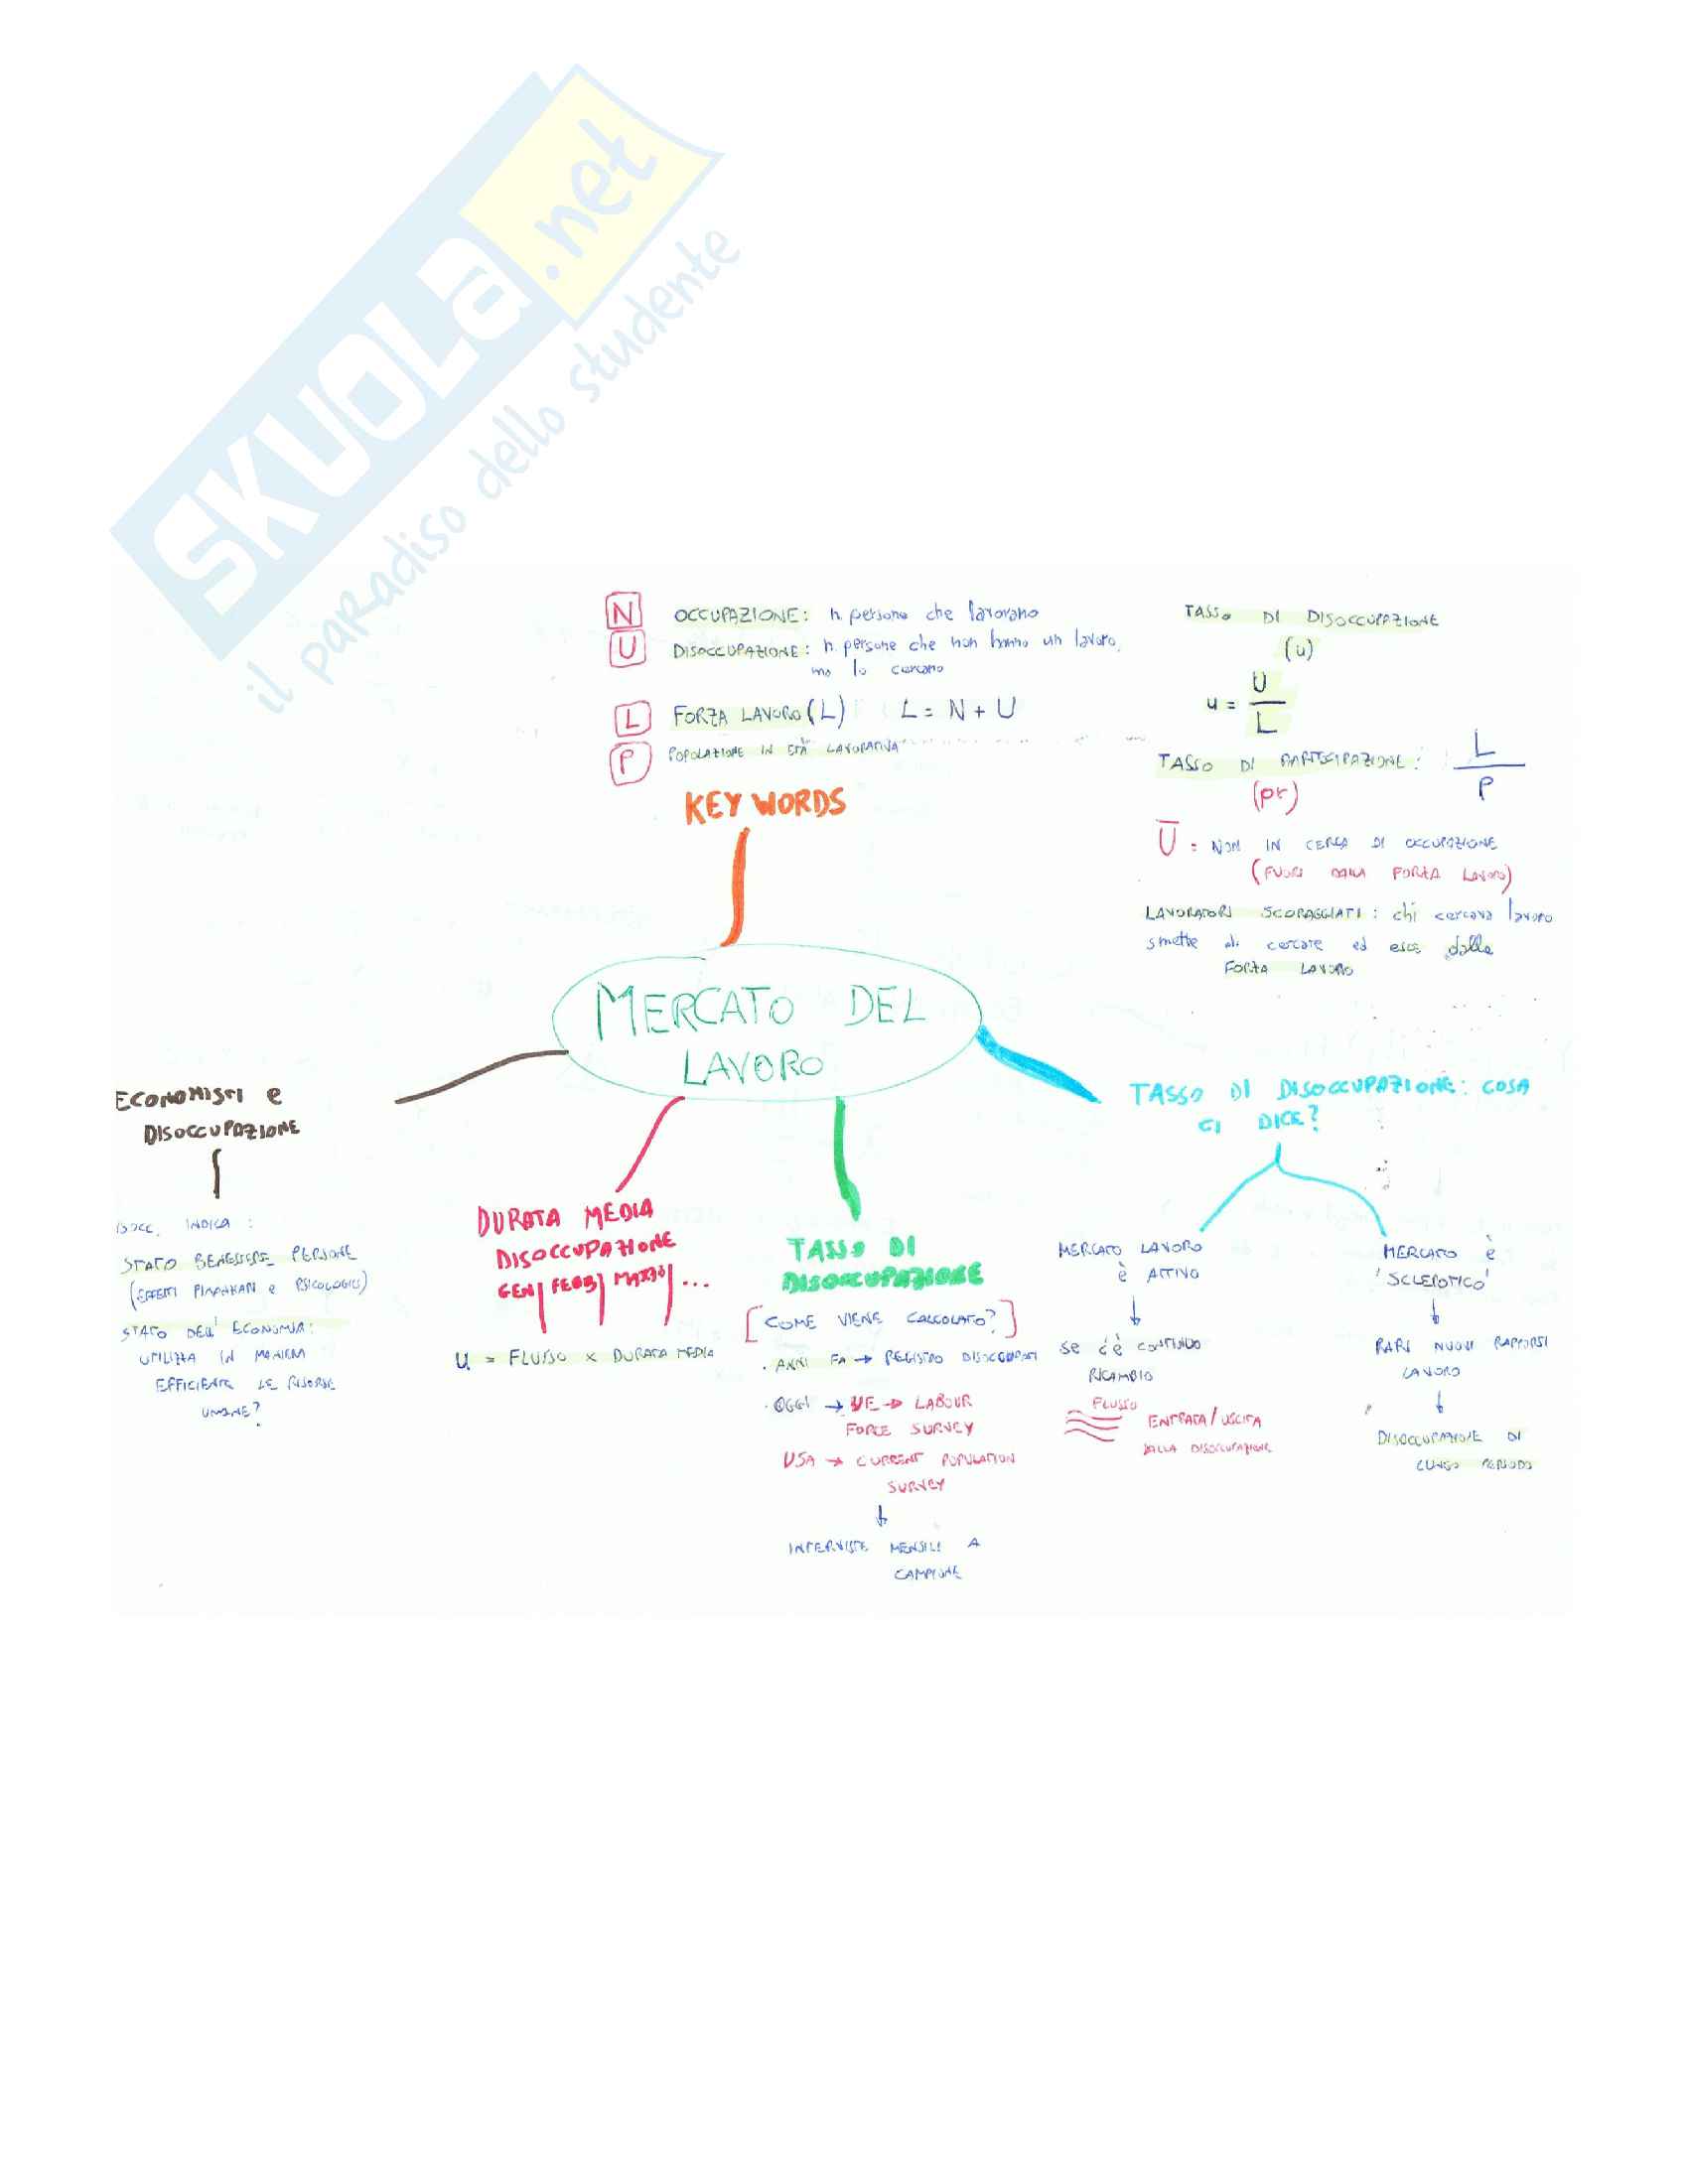 SKUOLa.net
il paradiso dello studente
N OCCUPAZIONE: n. persone che lavorano
U DISOCCUPAZIONE: n. persone che non hanno un lavoro,
ma lo cercano
L FORZA LAVORO (L) L = N + U
P POPOLAZIONE IN ETÀ LAVORATIVA
KEY WORDS
TASSO DI DISOCCUPAZIONE
(u)
u = U
L
TASSO DI PARTECIPAZIONE: L
P
(pr)
U̅ = NON IN CERCA DI OCCUPAZIONE
(FUORI DALLA FORZA LAVORO)
LAVORATORI SCORAGGIATI: chi cercava lavoro
smette di cercare ed esce dalla
FORZA LAVORO
MERCATO DEL
LAVORO
ECONOMISTI e
DISOCCUPAZIONE
DISOCC. INDICA:
STATO BENESSERE PERSONE
(EFFETTI FINANZIARI e PSICOLOGICI)
STATO DELL'ECONOMIA:
UTILIZZA IN MANIERA
EFFICIENTE LE RISORSE
UMANE?
DURATA MEDIA
DISOCCUPAZIONE
GEN| FEBB| MARZO| ...
U = FLUSSO × DURATA MEDIA
TASSO DI
DISOCCUPAZIONE
[COME VIENE CALCOLATO?]
. ANNI FA → REGISTRO DISOCCUPATI
. OGGI → UE → LABOUR
FORCE SURVEY
USA → CURRENT POPULATION
SURVEY
↓
INTERVISTE MENSILI A
CAMPIONE
TASSO DI DISOCCUPAZIONE: COSA
CI DICE?
MERCATO LAVORO
è ATTIVO
↓
se c'è continuo
RICAMBIO
FLUSSO
ENTRATA/USCITA
DALLA DISOCCUPAZIONE
MERCATO è
'SCLEROTICO'
↓
RARI NUOVI RAPPORTI
LAVORO
↓
DISOCCUPAZIONE DI
LUNGO PERIODO